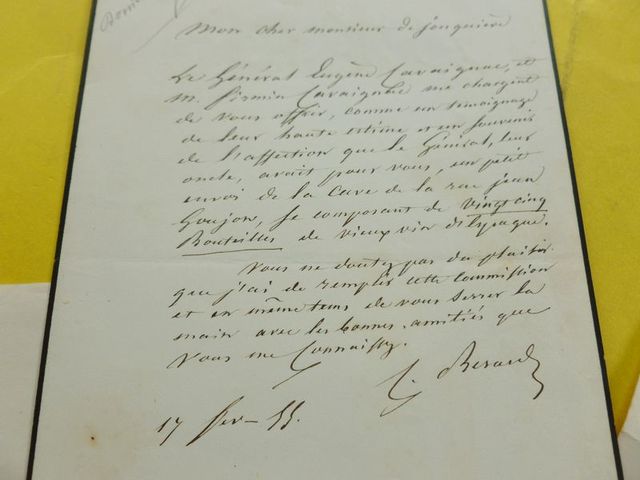 Mon cher monsieur de jonquière
Le Général Eugène Cavaignac, et
M. Firmin Cavaignac me chargent
de vous offrir, comme un témoignage
de leur haute estime et un souvenir
de l'affection que le Général, leur
oncle, avait pour vous, un petit
envoi de la cave de la rue jean
Goujon, se composant de vingt cinq
Bouteilles de vieux vin d'Espagne.
Vous ne doutez pas du plaisir
que j'ai de remplir cette commission
et en même tems de vous serrer la
main avec les bonnes amitiés que
vous me connaissez.
Berard
17 fev - 55.